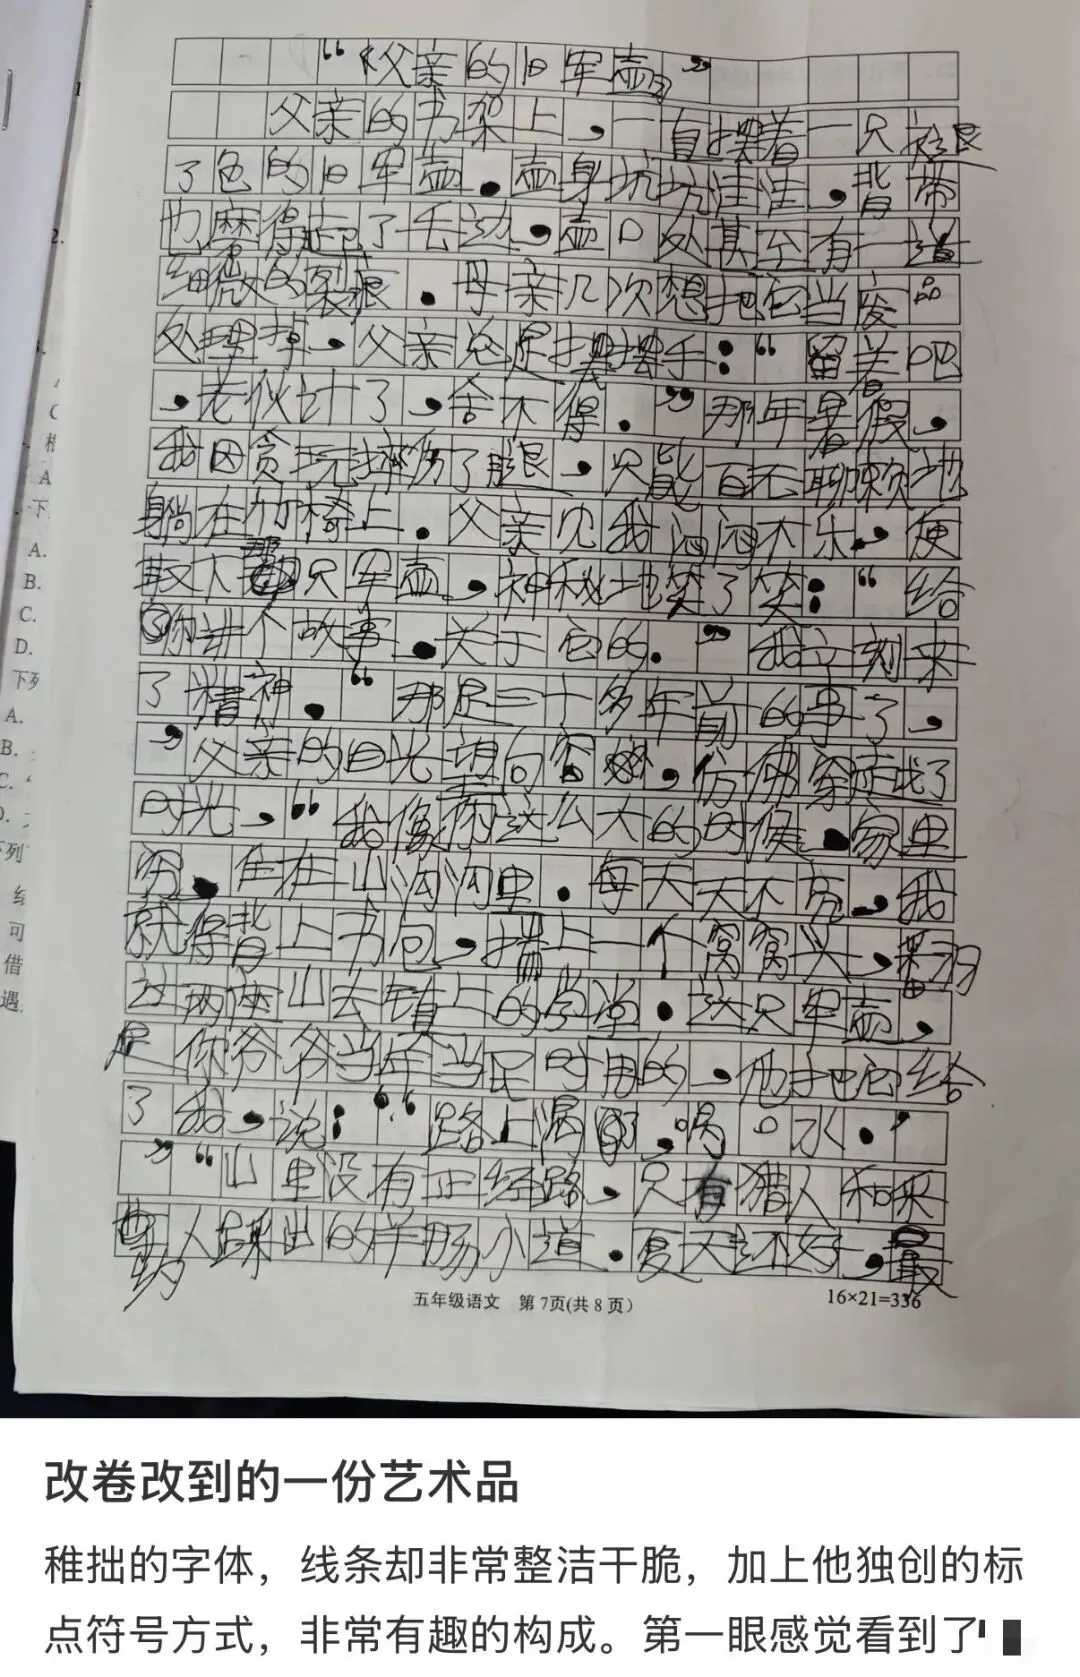 “《父亲的旧军壶》”
父亲的书架上，一直摆着一只褪
了色的旧军壶。壶身坑坑洼洼，背带
也磨得起了毛边，壶口处甚至有一道
细微的裂痕。母亲几次想把它当废品
处理掉，父亲总是摆摆手：“留着吧
，老伙计了，舍不得。”那年暑假，
我因贪玩摔伤了腿，只能百无聊赖地
躺在竹椅上。父亲见我闷闷不乐，便
取下那只军壶，神秘地笑了笑：“给
你讲个故事，关于它的。”我立刻来
了精神。“那是二十多年前的事了，
”父亲的目光望向窗，仿佛穿越了
时光，“我像你这么大的时候，家里
穷，住在山沟沟里。每天天不亮，我
就得背上书包，揣上一个窝窝头，翻
过两座山去镇上的学堂。这只军壶，
是你爷爷当年当兵时用的，他把它给
了我，说：‘“路上渴，喝口水。’
”“山里没有正经路，只有猎人和采
药人踩出的羊肠小道。夏天还好，最
五年级语文 第7页(共8页) 16×21=336
2.
A
C
A
下
A.
B.
C.
D.
下列
A.
B.
C.
D.
下列
可
借
遇
改卷改到的一份艺术品
稚拙的字体，线条却非常整洁干脆，加上他独创的标
点符号方式，非常有趣的构成。第一眼感觉看到了